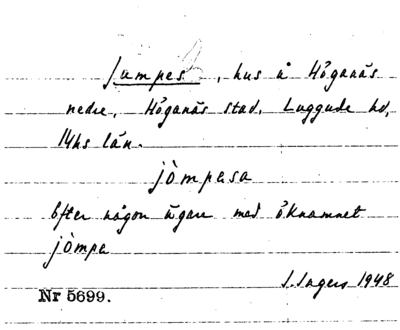 Jumpes, hus å Höganäs
nedre, Höganäs stad, Luggude hd,
Mhs län.
jòmpesa
Efter någon ägare med öknamnet
jòmpe
S. Ingers 1948
Nr 5699.